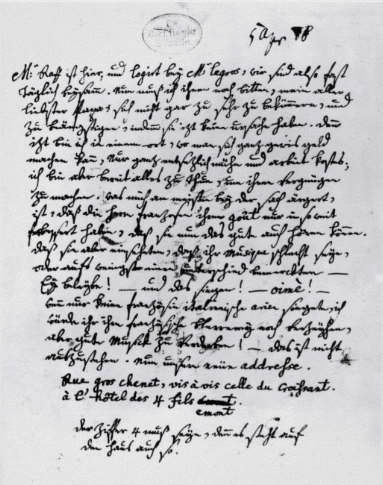 5 Apr 78
Mr: Raff ist hier, und logirt bey Mr: Legros, wir sind also fast
täglich beysam. Nun muß ich ihnen noch bitten, mein aller-
liebster Papa, sich nicht gar zu sehr zu bekümern, und
zu beängstigen; indem sie izt keine ursache haben. denn
izt bin ich in einem ort, wo man sich ganz gewis geld
machen kan, Nur ganz entsezlich mühe und arbeit kosts;
ich bin aber bereit alles zu thun, um ihnen vergnügen
zu machen. was mich am meisten bey der sach ärgert,
ist, daß die herrn franzosen ihren goût nur in so weit
verbessert haben, daß sie nun das gute auch hören könen.
daß sie aber einseheten, daß ihre Musique schlecht seye,
oder aufs wenigste einen unterschied bemerckten —
Ey beleybe! — und das singen! — oimè! —
wen nur keine französin italienische arien singete, ich
würde ihr ihre französische Plererey noch verzeyhen,
aber gute Musick zu verderben! — das ist nicht
auszustehen. Nun unsere neüe addreße.
Rue gros chenet, vis à vis celle du Croissant.
à l'Hôtel des 4 fils
emont
der Ziffer 4 muß seyn, denn es steht auf
den haus auch so.